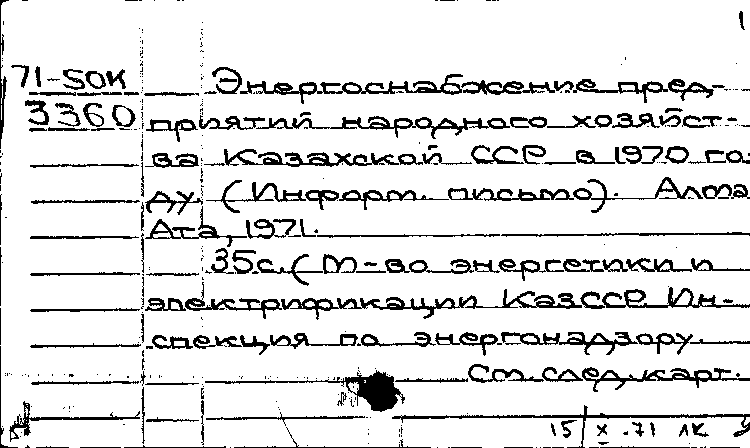 1
71-50К Энергоснабжение пред-
3360 приятий народного хозяйст-
ва Казахской ССР в 1970 го
ду. (Информ. письмо). Алма
Ата, 1971.
35с. (М-во энергетики и
электрификации КазССР Ин-
спекция по энергонадзору.
См. след. карт.
15/X.71 ЛК